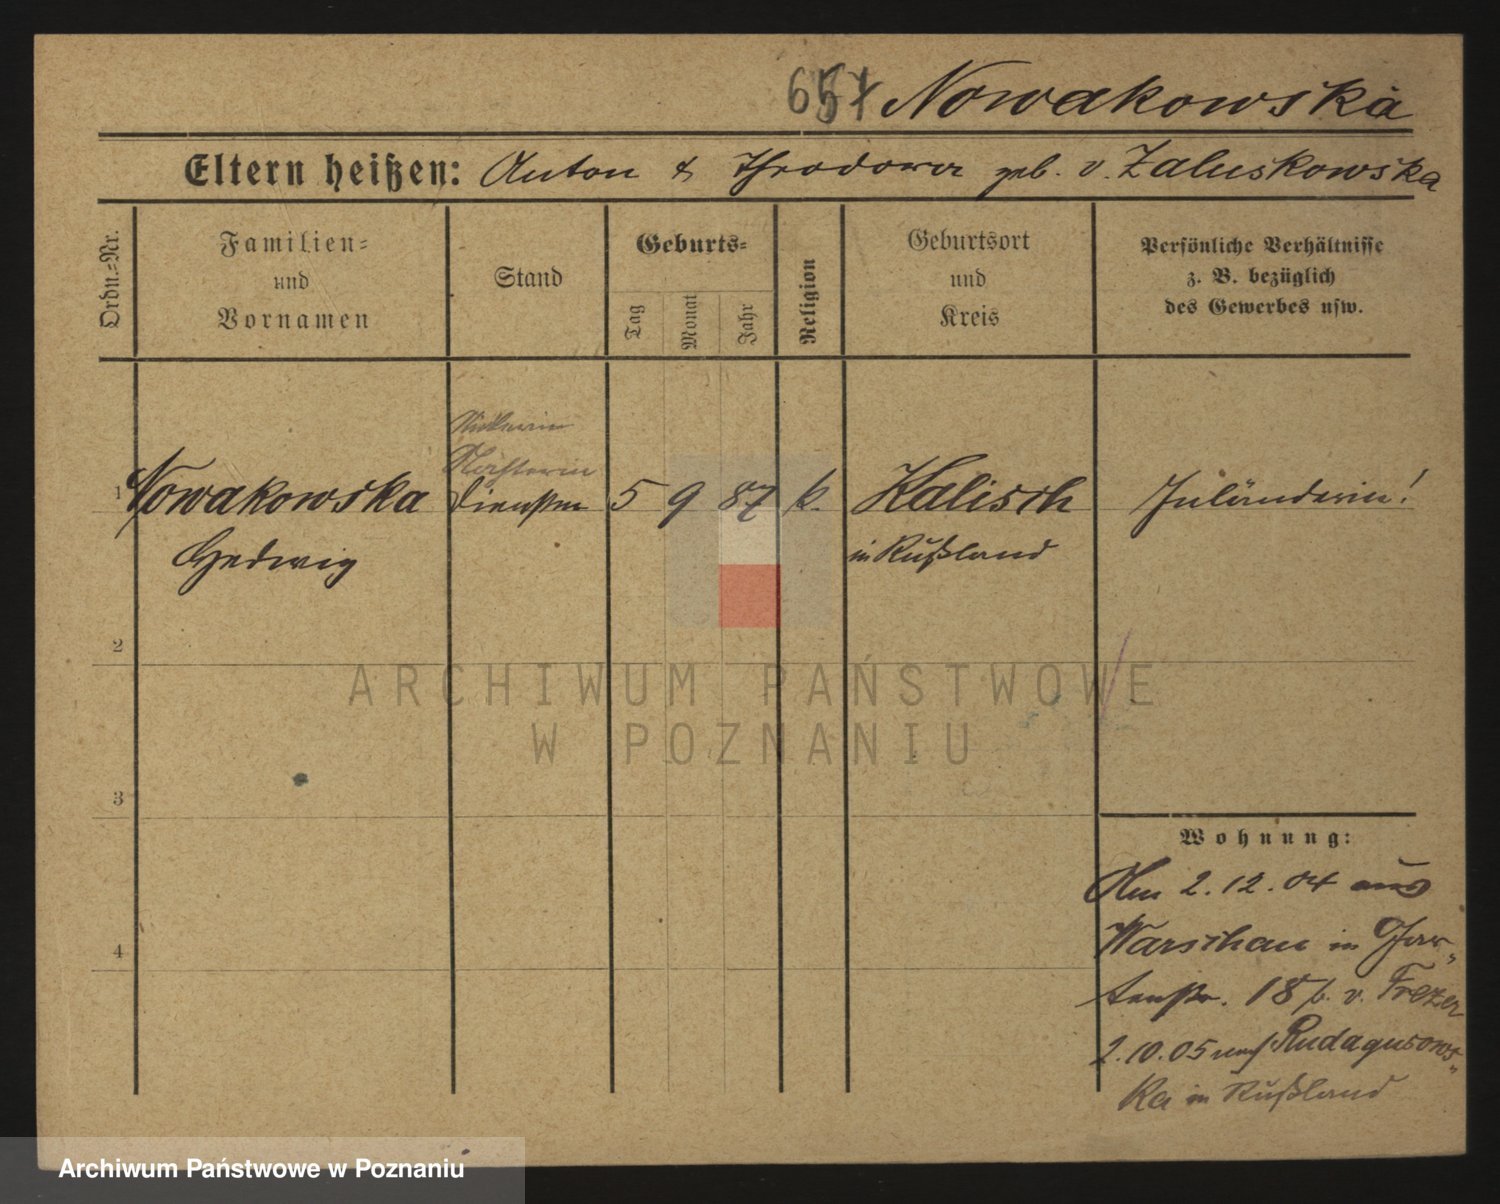 657 Nowakowska
Eltern heißen: Anton & Theodora geb. v. Zaluskowska
Ordn.=Nr.
Familien=
und
Vornamen
Stand
Geburts=
Tag
Monat
Jahr
Religion
Geburtsort
und
Kreis
Persönliche Verhältnisse
z. B. bezüglich
des Gewerbes usw.
Näherin
1 Nowakowska 5 9 87 k. Kalisch Inländerin!
Hedwig in Rußland
2
ARCHIWUM PAŃSTWOWE
W POZNANIU
3
4
Wohnung:
Am 2.12.04 aus
Warschau in Gar„
tenstr. 18 b. v. Frezer
2.10.05 nach Rudagusows„
ka in Rußland
Archiwum Państwowe w Poznaniu